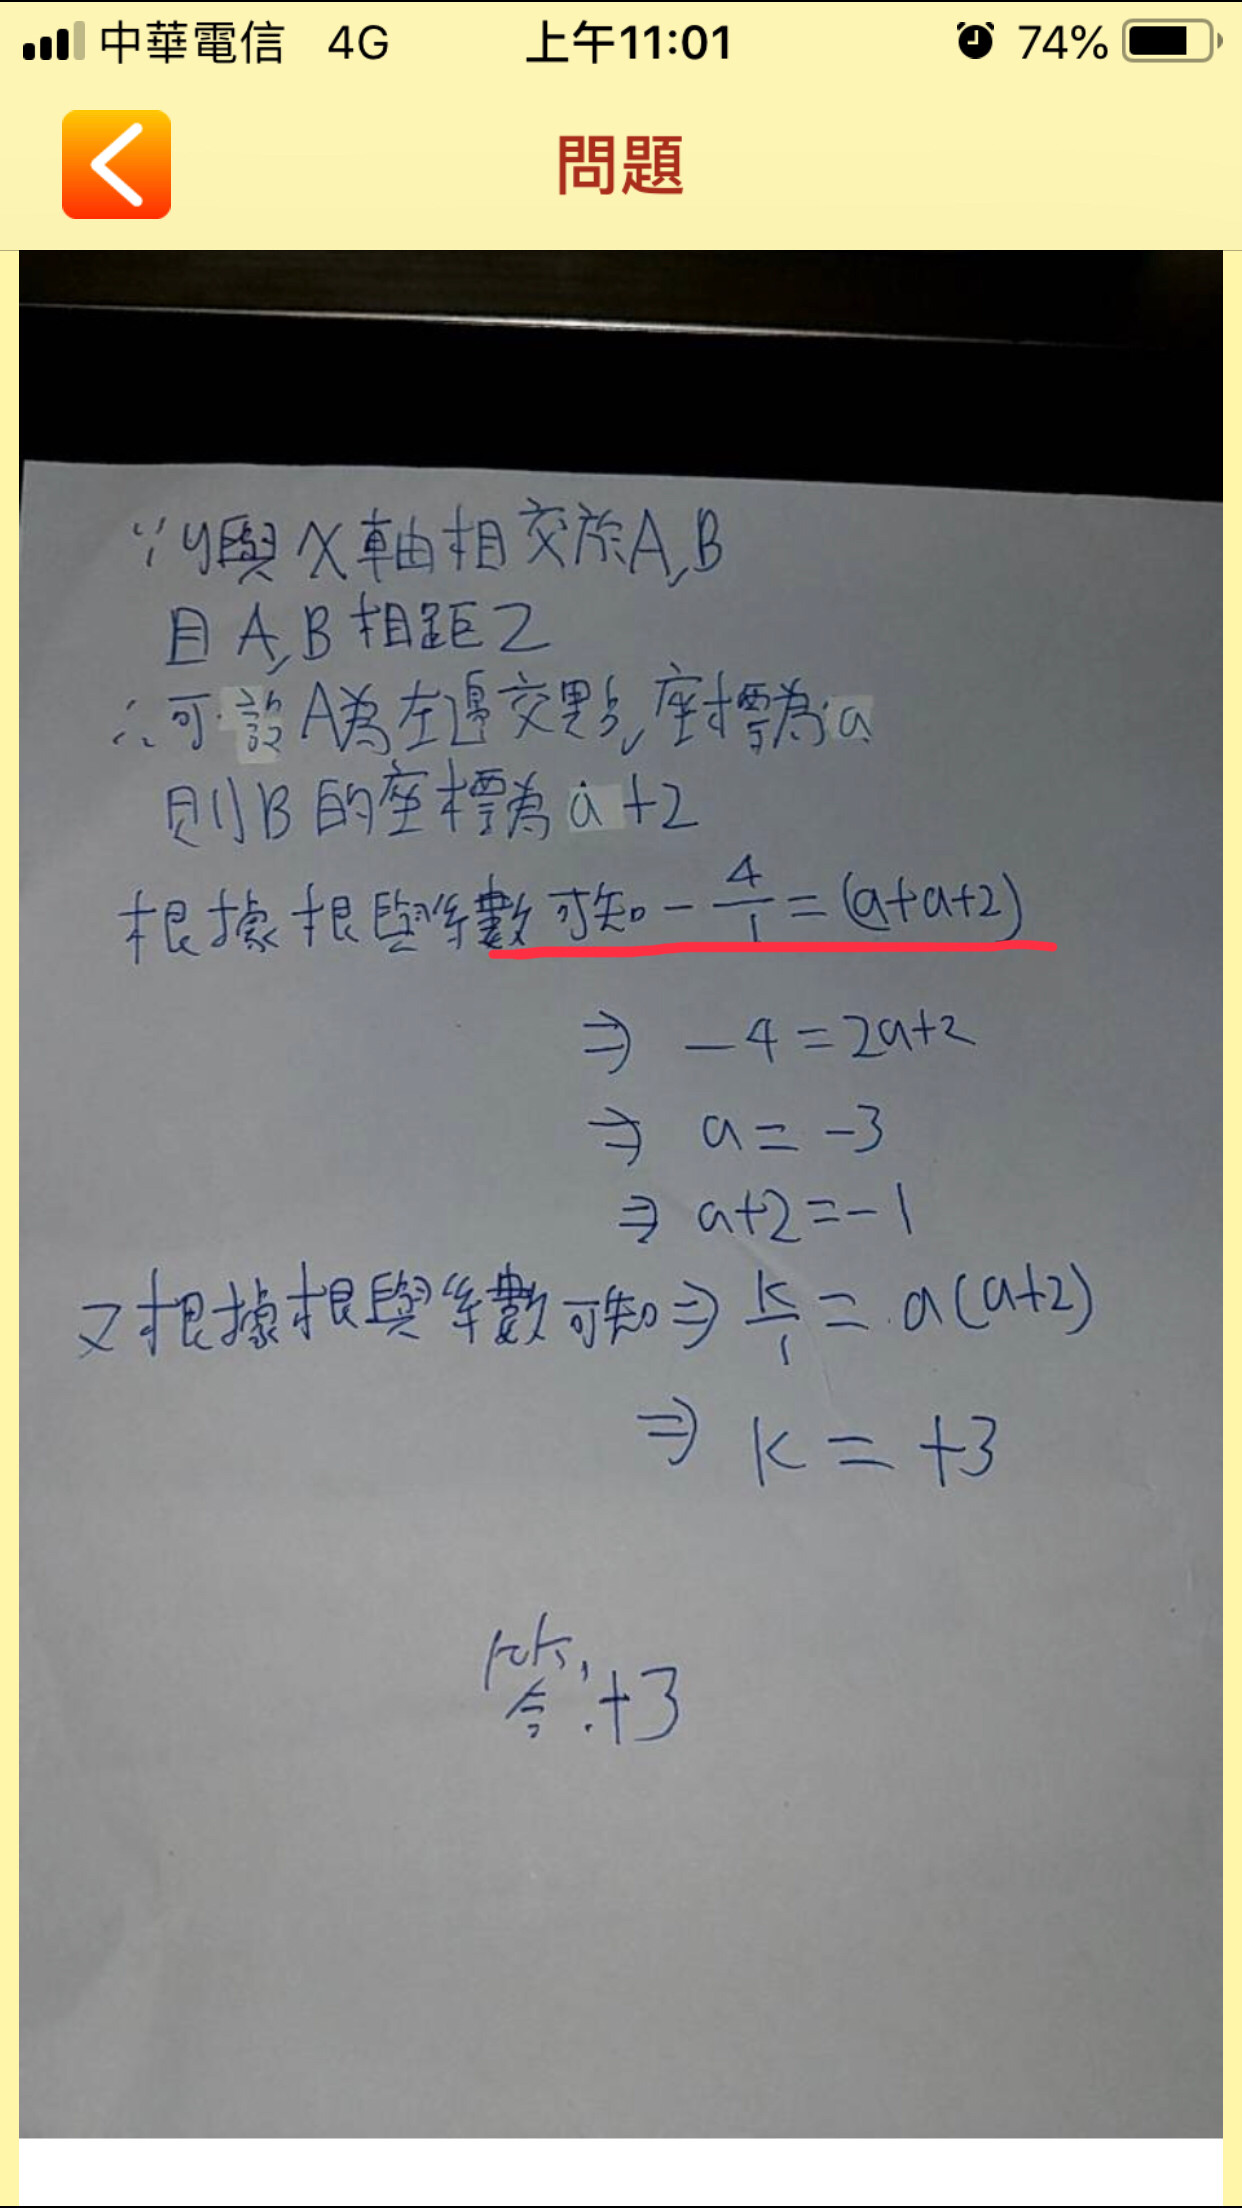 中華電信 4G 上午11:01 74%
問題
∵y與X軸相交於A,B
且A,B相距2
∴可設A為左邊交點,座標為a
則B的座標為a+2
根據根與係數可知-4/1=(a+a+2)
⇒ -4=2a+2
⇒ a=-3
⇒ a+2=-1
又根據根與係數可知⇒ k/1=a(a+2)
⇒ k=+3
答:+3